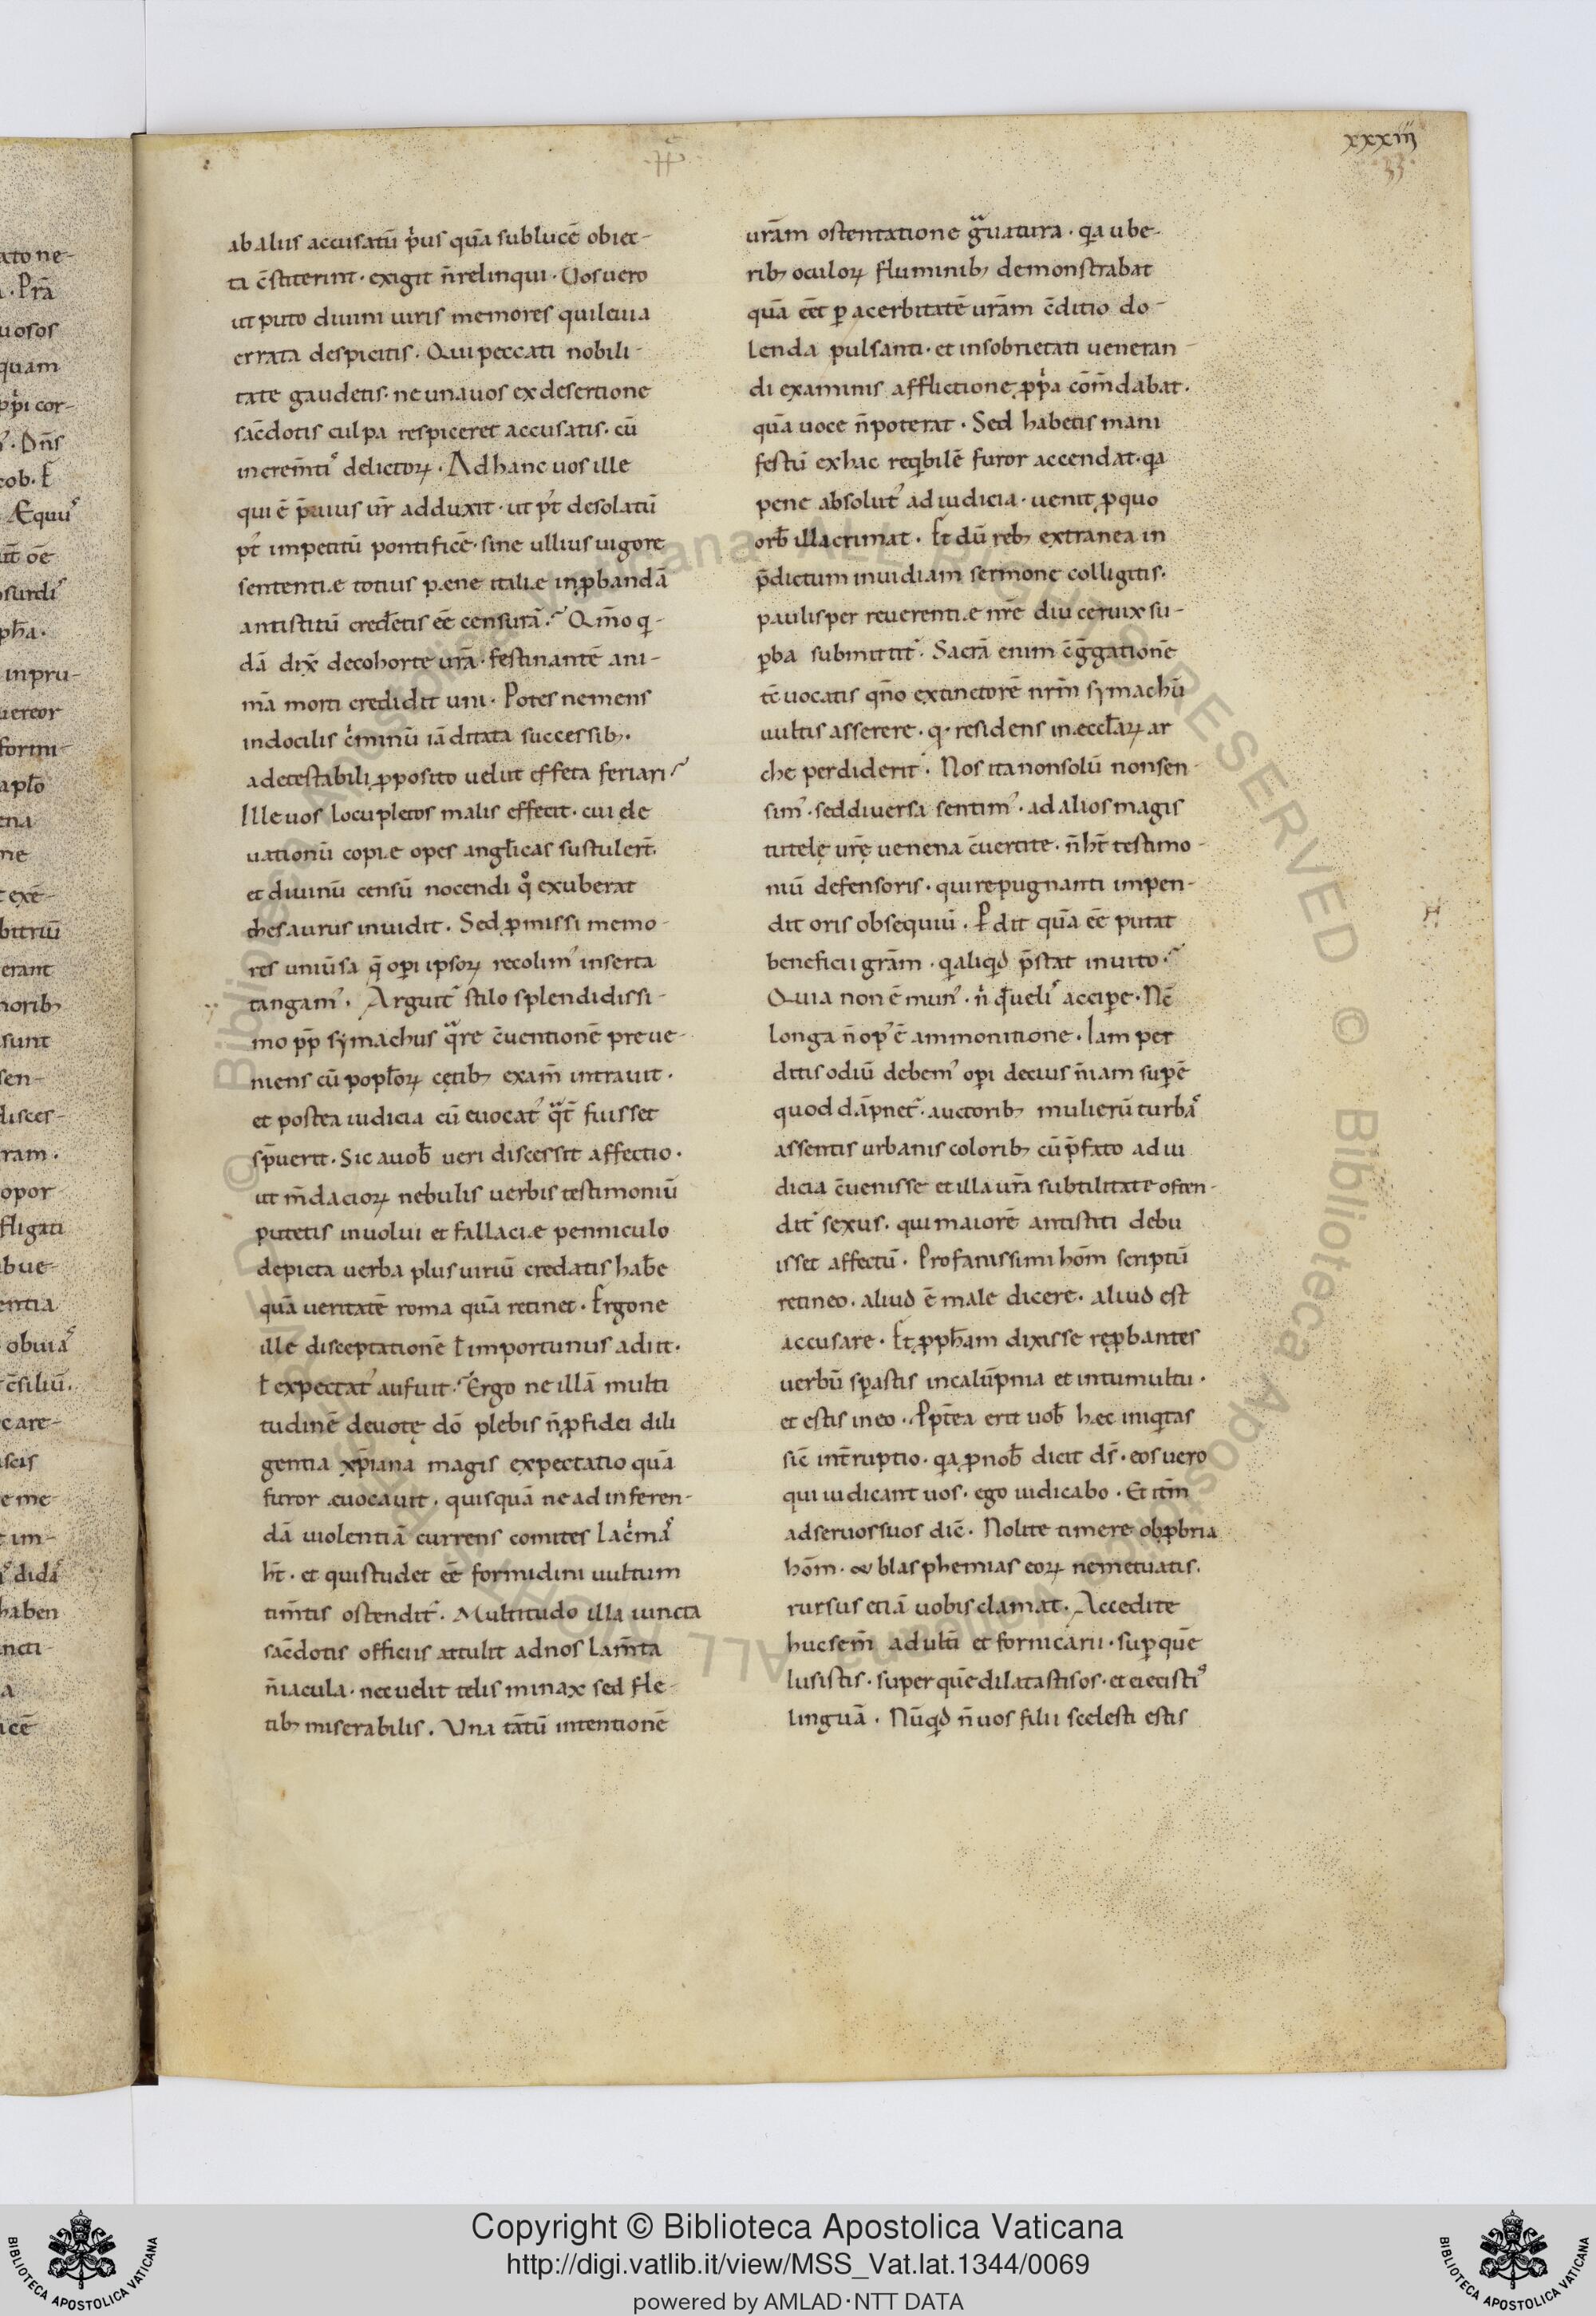 xxxiij
33
ab aliis accusatū p̍us quā sub lucē obiec-
ta c̄stiterint · exigit n̄ relinqui · Vos uero
ut puto diuini iuris memores qui leuia
errata despicitis . Qui peccati nobili-
tate gaudetis · ne una uos ex desertione
sac̄dotis culpa respiceret accusatis · cū
increm̄tiˀ delictoꝝ . Ad hanc uos ille
qui ē p̄uius ur̄ adduxit · ut pˀt desolatū
pˀt impetitū pontificē · sine ullius uigore
sententiæ totius pæne italiæ in ꝓbandā
antistitū cred̄etis eē censurā . Qm̄o q-
dā dix̄ de cohorte ur̄a · festinantē ani-
mā morti credidit uni . Potes ne mens
indocilis c̍minū iā ditata successib; .
a detestabili ꝓposito uelut effeta feriari
Ille uos locupletos malis effecit · cui ele
uationū copiæ opes angl̄icas sustuler̄t
et diuinū censū nocendi qͦ exuberat
thesaurus inuidit . Sed ꝓmissi memo-
res uniūsa q̄ oꝑi ipsoꝝ recolimˀ inserta
tangamˀ . Arguitˀ stilo splendidissi-
mo pp̄ symachus qͣre c̄uentionē preue-
niens cū popl̄oꝝ cętib; exam̄ intrauit .
et postea iudicia cū euocatˀ qͣt̄ fuisset
sp̄uerit . Sic a uob̄ ueri discessit affectio .
ut m̄dacioꝝ nebulis uerbis testimoniū
putetis inuolui et fallaciæ penniculo
depicta uerba plus uiriū credatis hab̄e
quā ueritatē roma quā retinet . Ergone
ille disceptationē ł importunus adiit .
ł expectatˀ aufuit . Ergo ne illā multi
tudinē deuotę dō plebis n̄ ꝑfidei dili
gentia xp̄iana magis expectatio quā
furor æuocauit . quisquā ne ad inferen-
dā uiolentiā currens comites lac̍maˀ
ht̄ . et qui studet eē formidini uultum
tim̄tis ostenditˀ . Multitudo illa iuncta
sac̄dotis officiis attulit ad nos lam̄ta
n̄ iacula · nec uelit telis minax sed fle-
tib; miserabilis . Una tātū intentionē
ur̄am ostentatione gͣuatura · qa ube-
rib; oculoꝝ fluminib; demonstrabat
quā eēt ꝑ acerbitatē ur̄am c̄ditio do-
lenda pulsanti · et in sobrietati ueneran-
di examinis afflictione ꝓp̍a cōm̄dabat .
quā uoce n̄ poterat . Sed habetis mani
festū ex hac reqͥbilē furor accendat · qa
pene absolutˀ ad iudicia · uenit ꝓ quo
orb̄ illacrimat . Et dū reb; extranea in
p̄dictum inuidiam sermone colligitis .
paulisper reuerentiæ nr̄e diu ceruix su-
ꝑba submittitˀ . Sacrā enim c̄gͣgationē
tē uocatis qn̄o extinctorē nr̄m symachū
uultis asserere . q · residens in eccl̄aꝝ ar
che perdiderit . Nos ita non solū non sen
simˀ . sed diuersa sentimˀ . ad alios magis
tutelę ur̄ę uenena c̄uertite . n̄ ht̄ testimo-
niū defensoris . qui repugnanti impen-
dit oris obsequiū . Pdit quā eē putat
beneficii gr̄am . qͥ aliqͥd p̄stat inuito .
Quia non ē munˀ . n̍ qd̄ ueliˀ acciꝑe . Nc̄
longa n̄ opˀ ē ammonitione . Iam per
ditis odiū debemˀ oꝑi decius n̄iam suꝑē
quod dāpnetˀ . auctorib; mulierū turbaˀ
assentis urbanis colorib; cū p̄fato ad iu
dicia c̄uenisse et illa ur̄a subtilitate osten-
ditˀ sexus . qui maiorē antistiti debu
isset affectū . Profanissimi hōm scriptū
retineo . aliud ē male dicere . aliud est
accusare . Et ꝓph̄am dixisse reꝓbantes
uerbū sꝑastis in calūpnia et in tumultu .
et estis in eo . Ppt̄ea erit uob̄ hæc iniqͥtas
sic̄ int̄ruptio . qa ꝓ nob̄ dicit ds̄ . eos uero
qui iudicant uos . ego iudicabo . Et itm̄
ad seruos suos dic̄ . Nolite timere obꝓbria
hōm . & blasphemias eoꝝ ne metuatis .
rursus etiā uobis clamat . Accedite
huc sem̄ adult̄i et fornicarii . suꝑ quē
lusistis . super quē dilatastis os . et eiecistiˀ
linguā . Nūqͥd n̄ uos filii scelesti estis
Copyright © Biblioteca Apostolica Vaticana
http://digi.vatlib.it/view/MSS_Vat.lat.1344/0069
powered by AMLAD·NTT DATA